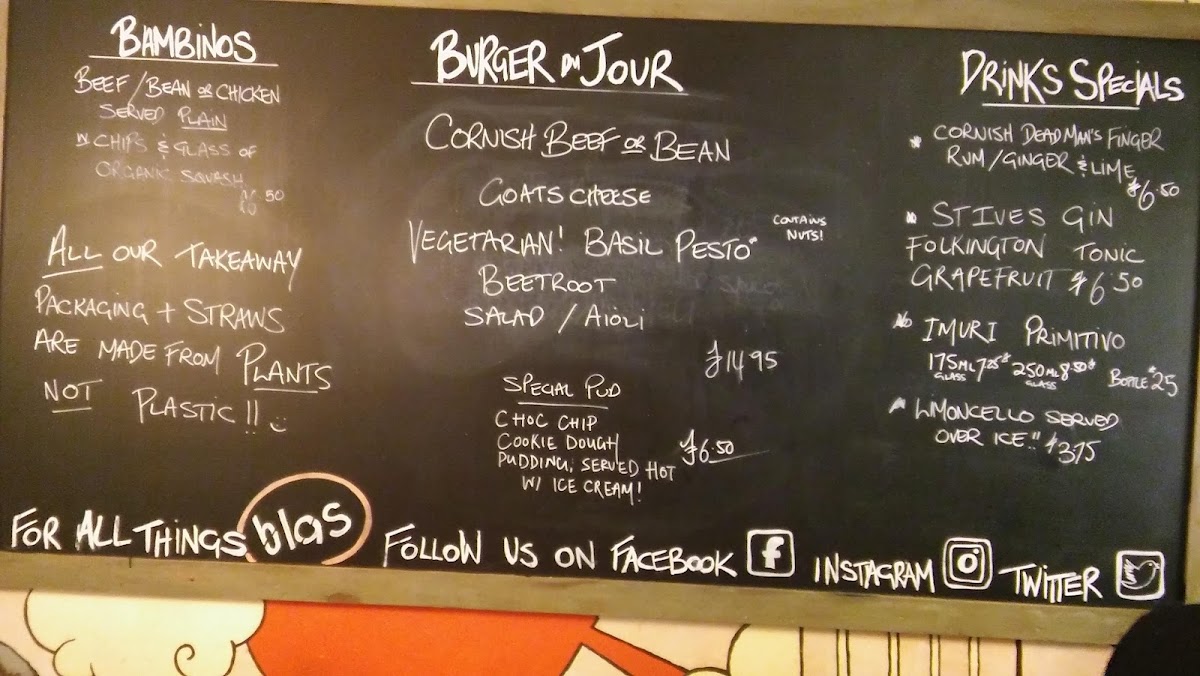 BAMBINOS
BEEF/BEAN OR CHICKEN
SERVED PLAIN
W CHIPS & GLASS OF
ORGANIC SQUASH
ALL OUR TAKEAWAY
PACKAGING + STRAWS
ARE MADE FROM PLANTS
NOT PLASTIC!!
BURGER DU JOUR
CORNISH BEEF OR BEAN
GOATS CHEESE
VEGETARIAN! BASIL PESTO*
CONTAINS
NUTS!
BEETROOT
SALAD / AIOLI
£14.95
SPECIAL PUD
CHOC CHIP
COOKIE DOUGH
PUDDING, SERVED HOT
W/ ICE CREAM!
£6.50
DRINKS SPECIALS
* CORNISH DEADMAN'S FINGER
RUM/GINGER & LIME
£6.50
* ST IVES GIN
FOLKINGTON TONIC
GRAPEFRUIT £6.50
IMURI PRIMITIVO
175ML 7.25 250ML 8.50 BOTTLE 25
GLASS GLASS
LIMONCELLO SERVED
OVER ICE!! £3.75
FOR ALL THINGS blas FOLLOW US ON FACEBOOK f INSTAGRAM TWITTER